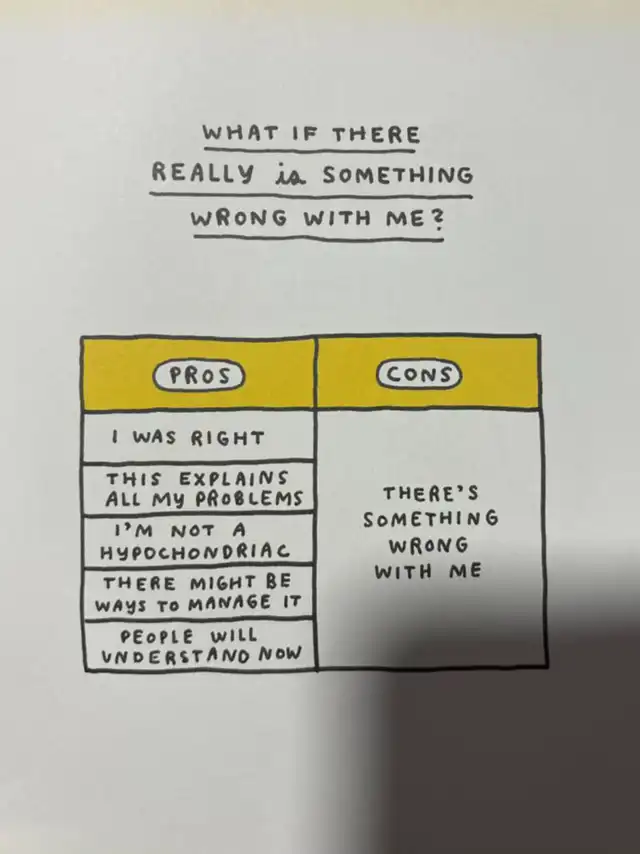 WHAT IF THERE
REALLY is SOMETHING
WRONG WITH ME?
PROS
CONS
I WAS RIGHT
THIS EXPLAINS
ALL MY PROBLEMS
I'M NOT A
HYPOCHONDRIAC
THERE MIGHT BE
WAYS TO MANAGE IT
PEOPLE WILL
UNDERSTAND NOW
THERE'S
SOMETHING
WRONG
WITH ME